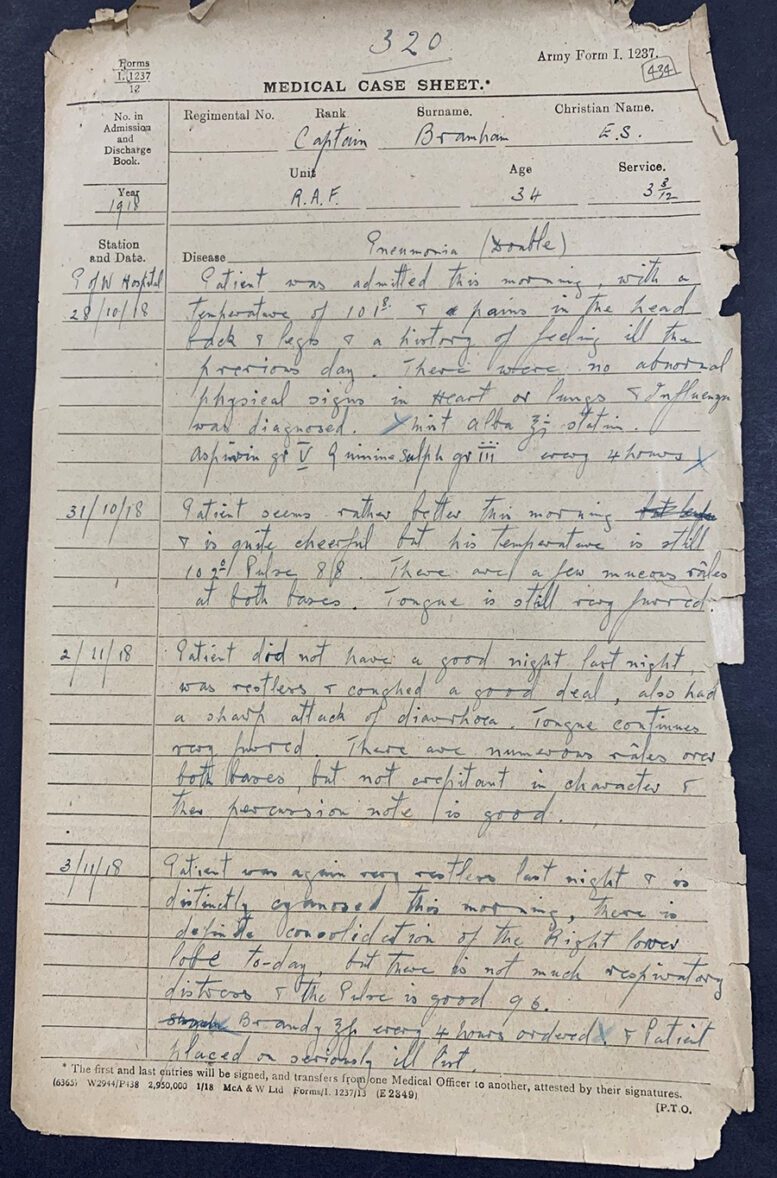 320
Forms
I. 1237
12
Army Form I. 1237.
434
MEDICAL CASE SHEET.*
No. in
Admission
and
Discharge
Book.
Regimental No. Rank Surname. Christian Name.
Captain Bramham E.S.
Year
1918
Unit Age Service.
R.A.F. 34 3 3/12
Station
and Date.
Disease Pneumonia (Double)
P of W Hospital
28/10/18
Patient was admitted this morning, with a
temperature of 101⁸ & pains in the head
back & legs & a history of feeling ill the
previous day. There were no abnormal
physical signs in Heart or lungs & Influenza
was diagnosed. Mist Alba ℥j statim.
Aspirin gr V Quinine Sulph gr iii every 4 hours
31/10/18
Patient seems rather better this morning
& is quite cheerful but his temperature is still
102 Pulse 88. There are a few mucous râles
at both bases. Tongue is still very furred.
2/11/18
Patient did not have a good night last night,
was restless & coughed a good deal, also had
a sharp attack of diarrhoea. Tongue continues
very furred. There are numerous râles over
both bases, but not crepitant in character &
the percussion note is good.
3/11/18
Patient was again very restless last night & is
distinctly cyanosed this morning, there is
definite consolidation of the Right lower
lobe to-day, but there is not much respiratory
distress & the Pulse is good 96.
Brandy every 4 hours ordered & Patient
placed on seriously ill list.
* The first and last entries will be signed, and transfers from one Medical Officer to another, attested by their signatures.
(6365) W2944/P438 2,950,000 1/18 McA & W Ltd Forms/I. 1237/13 (E 2849)
[P.T.O.